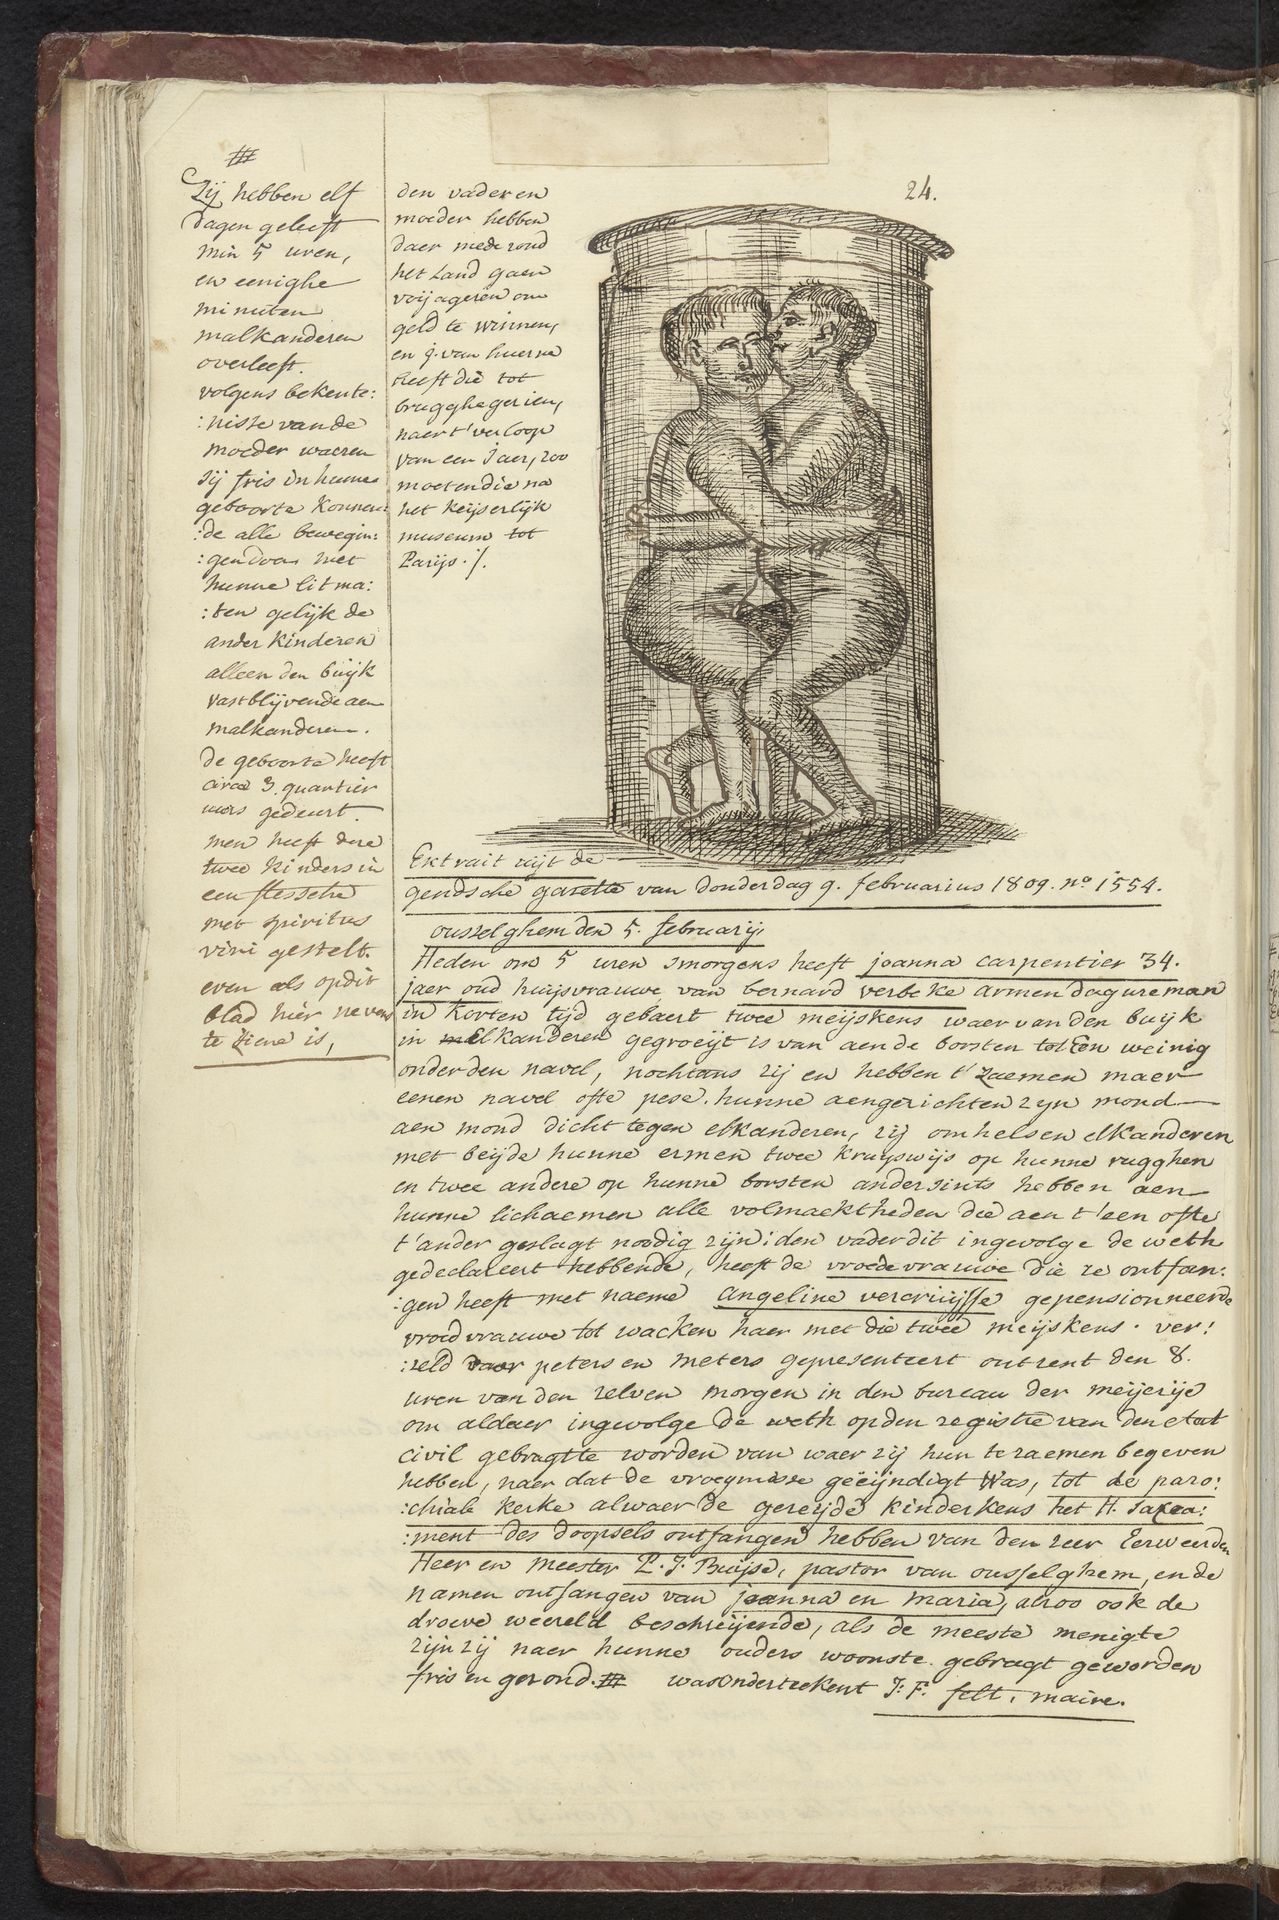 24.
###
Zij hebben elf
dagen geleeft
min 5 uren,
en eenighe
minuten
malkanderen
overleeft.
volgens bekente:
:nisse van de
moeder waeren
sij fris in hunne
geboorte konnen:
:de alle bewegin:
:gen doen met
hunne litma:
:ten gelijk de
ander kinderen
alleen den buijk
vastblijvende aen
malkanderen.
de geboorte heeft
circa 3 quartier
uers gedeurt.
men heeft dese
twee kinders in
een flessche
met spiritus
vini gestelt.
even als op dit
blad hier nevens
te siene is,
den vader en
moeder hebben
daer mede rond
het Land gaen
voijageren om
geld te winnen,
en j. van huerne
heeft die tot
brugghe gesien,
naer t'verloop
van een Jaer, zoo
moeten die na
het Keijserlijk
museum tot
Parijs ./.
Extrait uijt de
gendsche gazette van donderdag 9. februarius 1809. no 1554.
ousselghem den 5. februarij,
Heden om 5 uren smorgens heeft joanna carpentier 34.
jaer oud huijsvrauwe van bernard verbeke armen dagureman
in korten tijd gebaert twee meijskens waer van den buijk
in melkanderen gegroeijt is van aen de borsten tot Een weinig
onder den navel, nochtans zij en hebben t'zaemen maer
eenen navel ofte pese. hunne aengezichten zijn mond
aen mond dicht tegen elkanderen, zij omhelsen elkanderen
met beijde hunne ermen twee kruyswijs op hunne rugghen
en twee andere op hunne borsten andersints hebben aen
hunne lichaemen alle volmaektheden die aen t'een ofte
t'ander geslagt noodig zijn: den vader dit ingevolge de weth
gedeclareert hebbende, heeft de vroedevrauwe die ze ontfan:
:gen heeft met naeme angeline vercruijsse gepensionneerde
vroedvrauwe tot wacken haer met die twee meijskens. ver:
:zeld daer peters en meters gepresenteert ontrent den 8.
uren van den zelven morgen in den bureau der meijerije
om aldaer ingevolge de weth op den registre van den etat
civil gebragt te worden van waer zij hun te zaemen begeven
hebben, naer dat de vroegmisse geëijndigt was, tot de paro:
:chiale kerke alwaer de gezeijde kinderkens het H. Sacra:
:ment des doopsels ontfangen hebben van den zeer Eerweerden
Heer en meester P. J. Buijse, pastor van ousselghem, en de
namen ontfangen van joanna en maria, alzoo ook de
droeve weereld beschreijende, als de meeste menigte
zijn zij naer hunne ouders woonste gebragt geworden
fris en gezond. ### was onderteekent J. F. felt, maire.